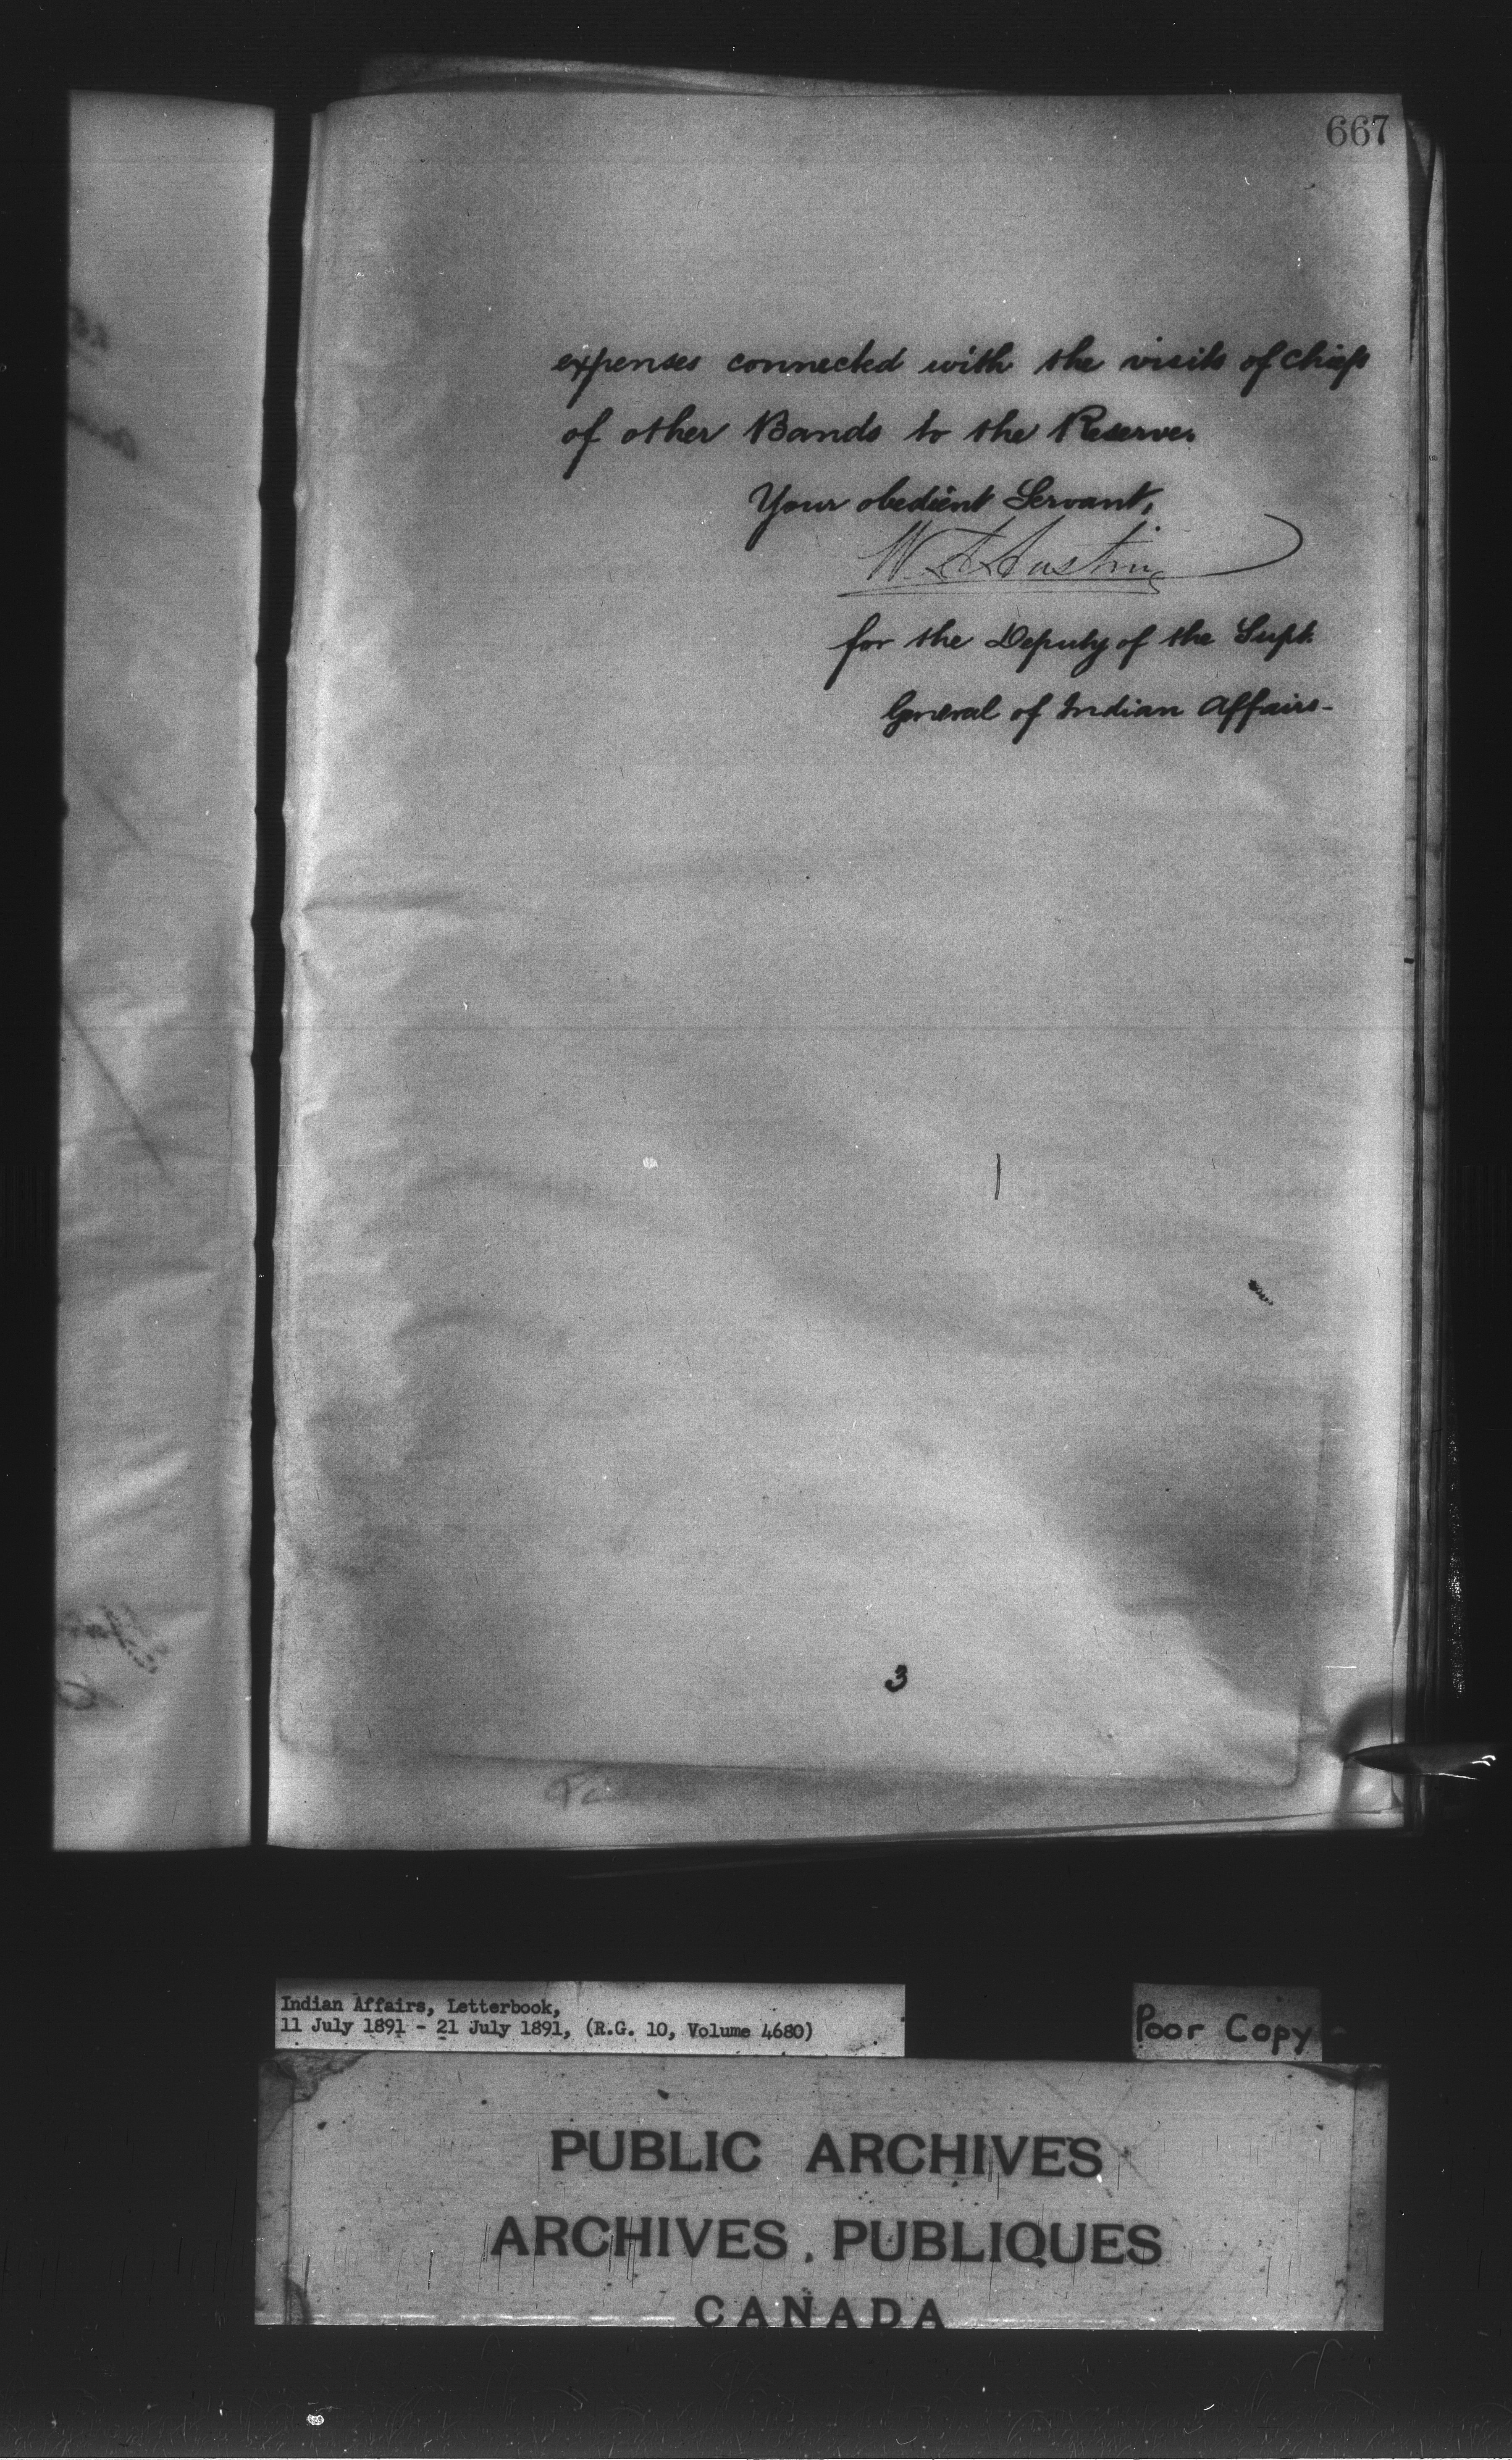 667
expenses connected with the visits of Chiefs
of other Bands to the Reserve.
Your obedient Servant,
W. A. Austin
for the Deputy of the Supt.
General of Indian Affairs-
3
Indian Affairs, Letterbook,
11 July 1891 - 21 July 1891, (R.G. 10, Volume 4680)
Poor Copy
PUBLIC ARCHIVES
ARCHIVES PUBLIQUES
CANADA